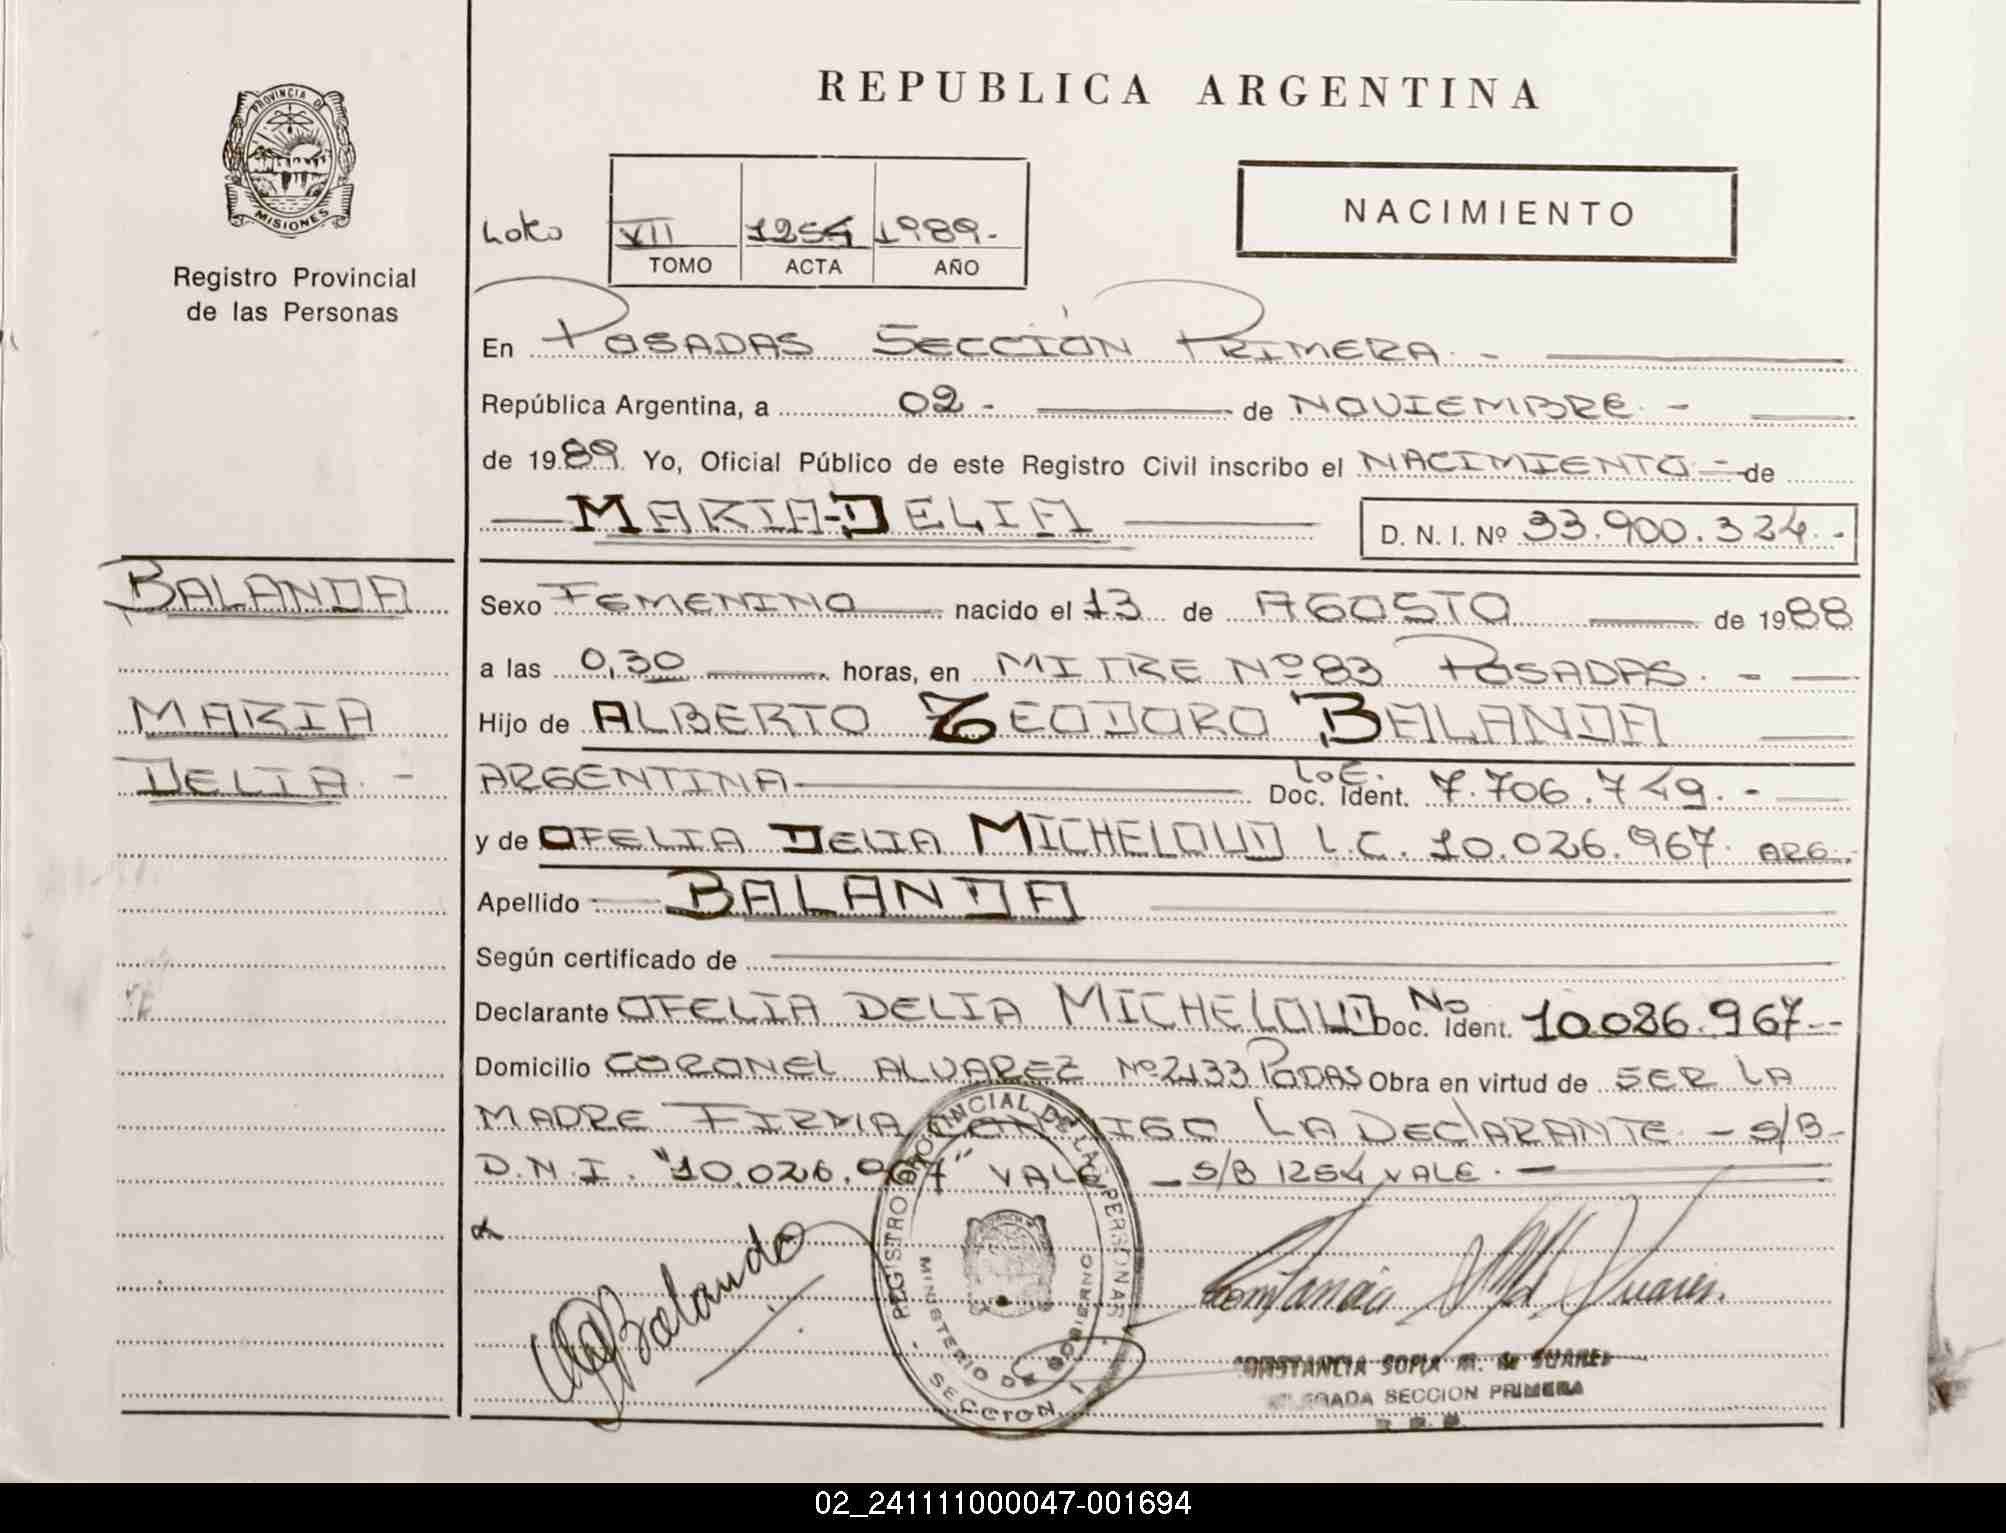 REPUBLICA ARGENTINA
PROVINCIA D
MISIONES
Registro Provincial
de las Personas
NACIMIENTO
VII 1254 1989.-
TOMO ACTA AÑO
En POSADAS SECCIÓN PRIMERA.-
República Argentina, a 02.- de NOVIEMBRE.-
de 1989. Yo, Oficial Público de este Registro Civil inscribo el NACIMIENTO.- de
MARIA-DELIA
D. N. I. Nº 33.900.324.-
BALANDA
MARIA
DELIA.-
Sexo FEMENINO nacido el 13 de AGOSTO de 1988
a las 0,30 horas, en MITRE Nº 83 POSADAS.-
Hijo de ALBERTO TEODORO BALANDA
ARGENTINA L.E. Doc. Ident. 7.706.749.-
y de OFELIA DELIA MICHELOUD L.C. 10.026.967. ARG.-
Apellido BALANDA
Según certificado de
Declarante OFELIA DELIA MICHELOUD Doc. Ident. No 10.026.967.-
Domicilio CORONEL ALVAREZ Nº 2133 PODAS Obra en virtud de SER LA
MADRE FIRMA CONMIGO LA DECLARANTE.- S/B-
D.N.I. "10.026.967" VALE - S/B 1254 VALE.-
REGISTRO PROVINCIAL DE LAS PERSONAS
MINISTERIO DE GOBIERNO
SECCION I
Balanda
Constancia Suarez.
CONSTANCIA SOFIA M. de SUAREZ
DELEGADA SECCION PRIMERA
02_241111000047-001694